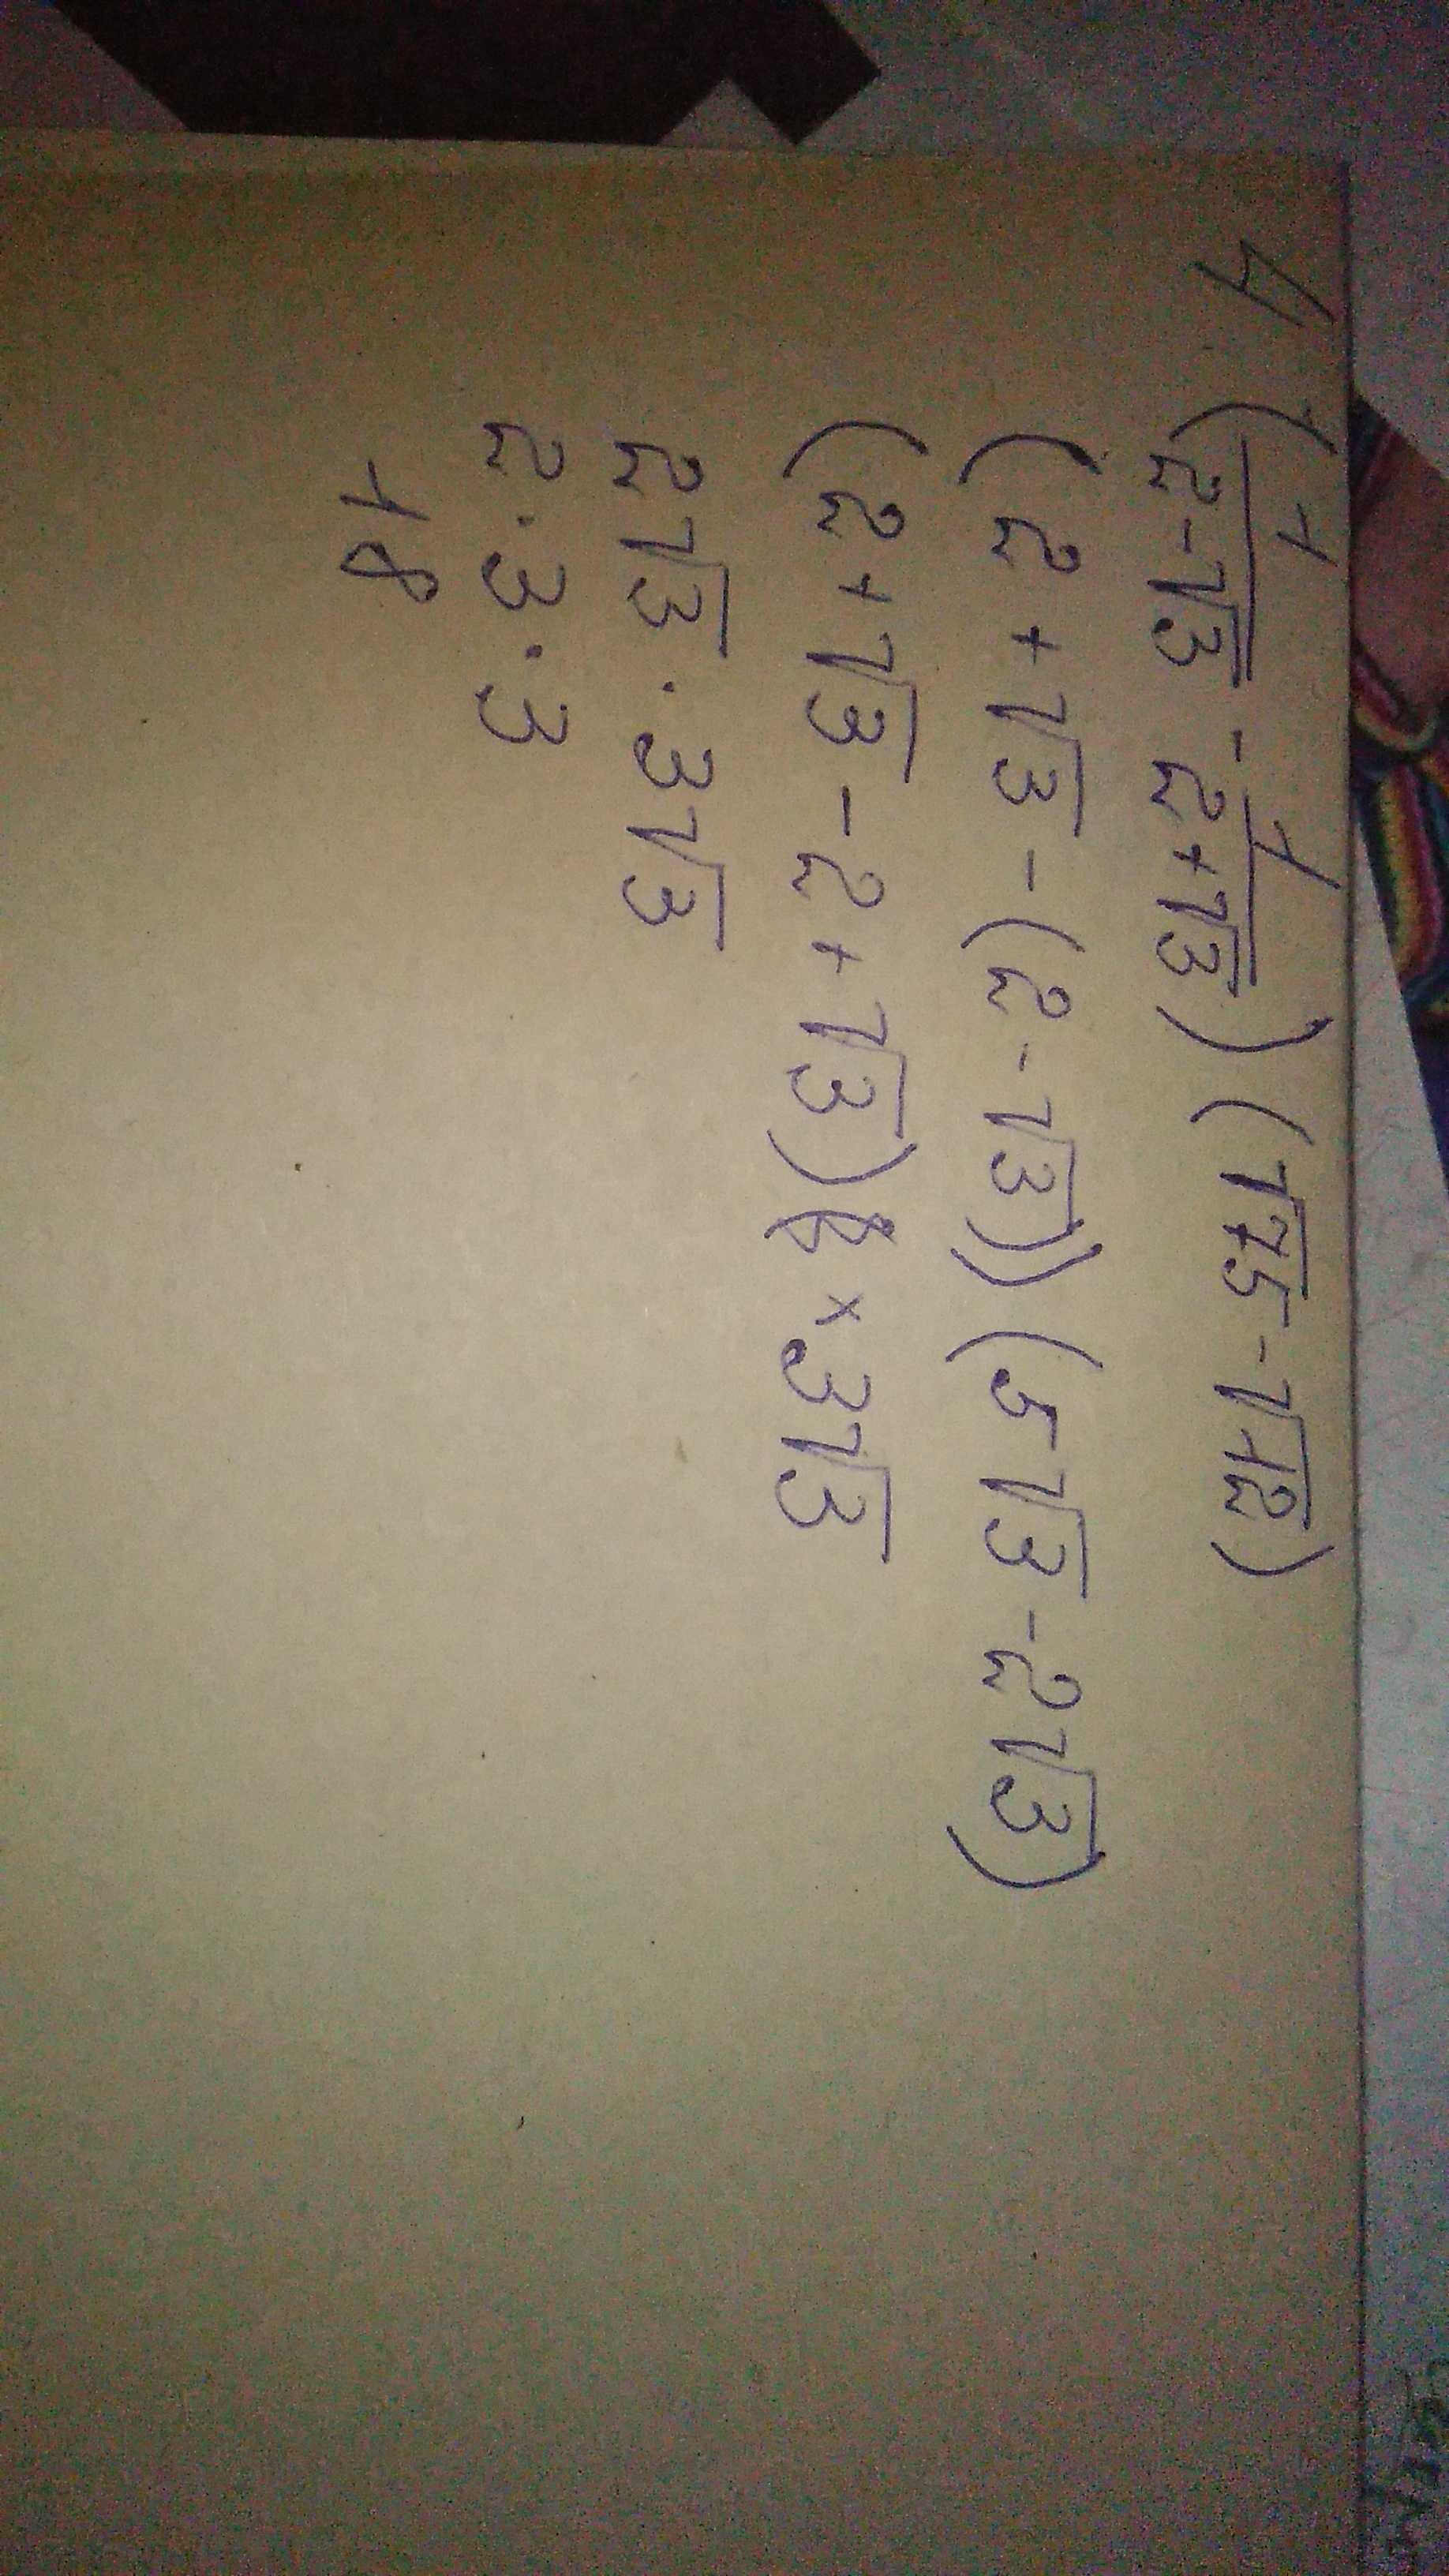 4 (1/(2-√3) - 1/(2+√3)) (√75 - √12)
(2 + √3 - (2 - √3)) (5√3 - 2√3)
(2 + √3 - 2 + √3) × 3√3
2√3 · 3√3
2 · 3 · 3
18